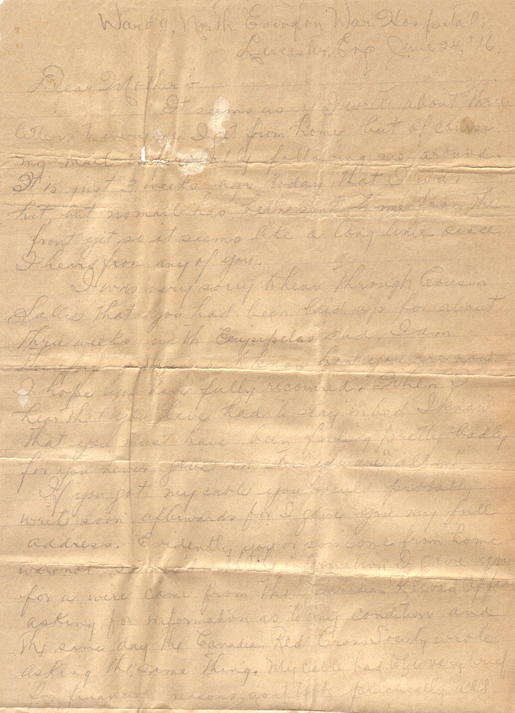 Ward 9, North Evington War Hospital,
Leicester, Eng. June 24, '16.
Dear Mother :-
It seems as if I write about three
letters to every one I get from home but of course
my mail is following me around.
It is just 3 weeks now today that I was
hit, but no mail has been sent to me from the
front yet so it seems like a long time since
I heard from any of you.
I was very sorry to hear through Cousin
Sallie that you had been laid up for about
three weeks with Erysipelas and I am
how you are now.
I hope you have fully recovered. When I
hear that you have had to stay in bed I know
that you must have been feeling pretty badly
for you never give in
If you got my cable you will probably
write soon afterwards for I gave you my full
address. Evidently you or someone from home
were not condition I gave you
for a wire came from the Canadian Record Office
asking for information as to my condition and
the same day the Canadian Red Cross Society wrote
asking the same thing. My cable had to be very brief
for financial reasons, as it took practically all